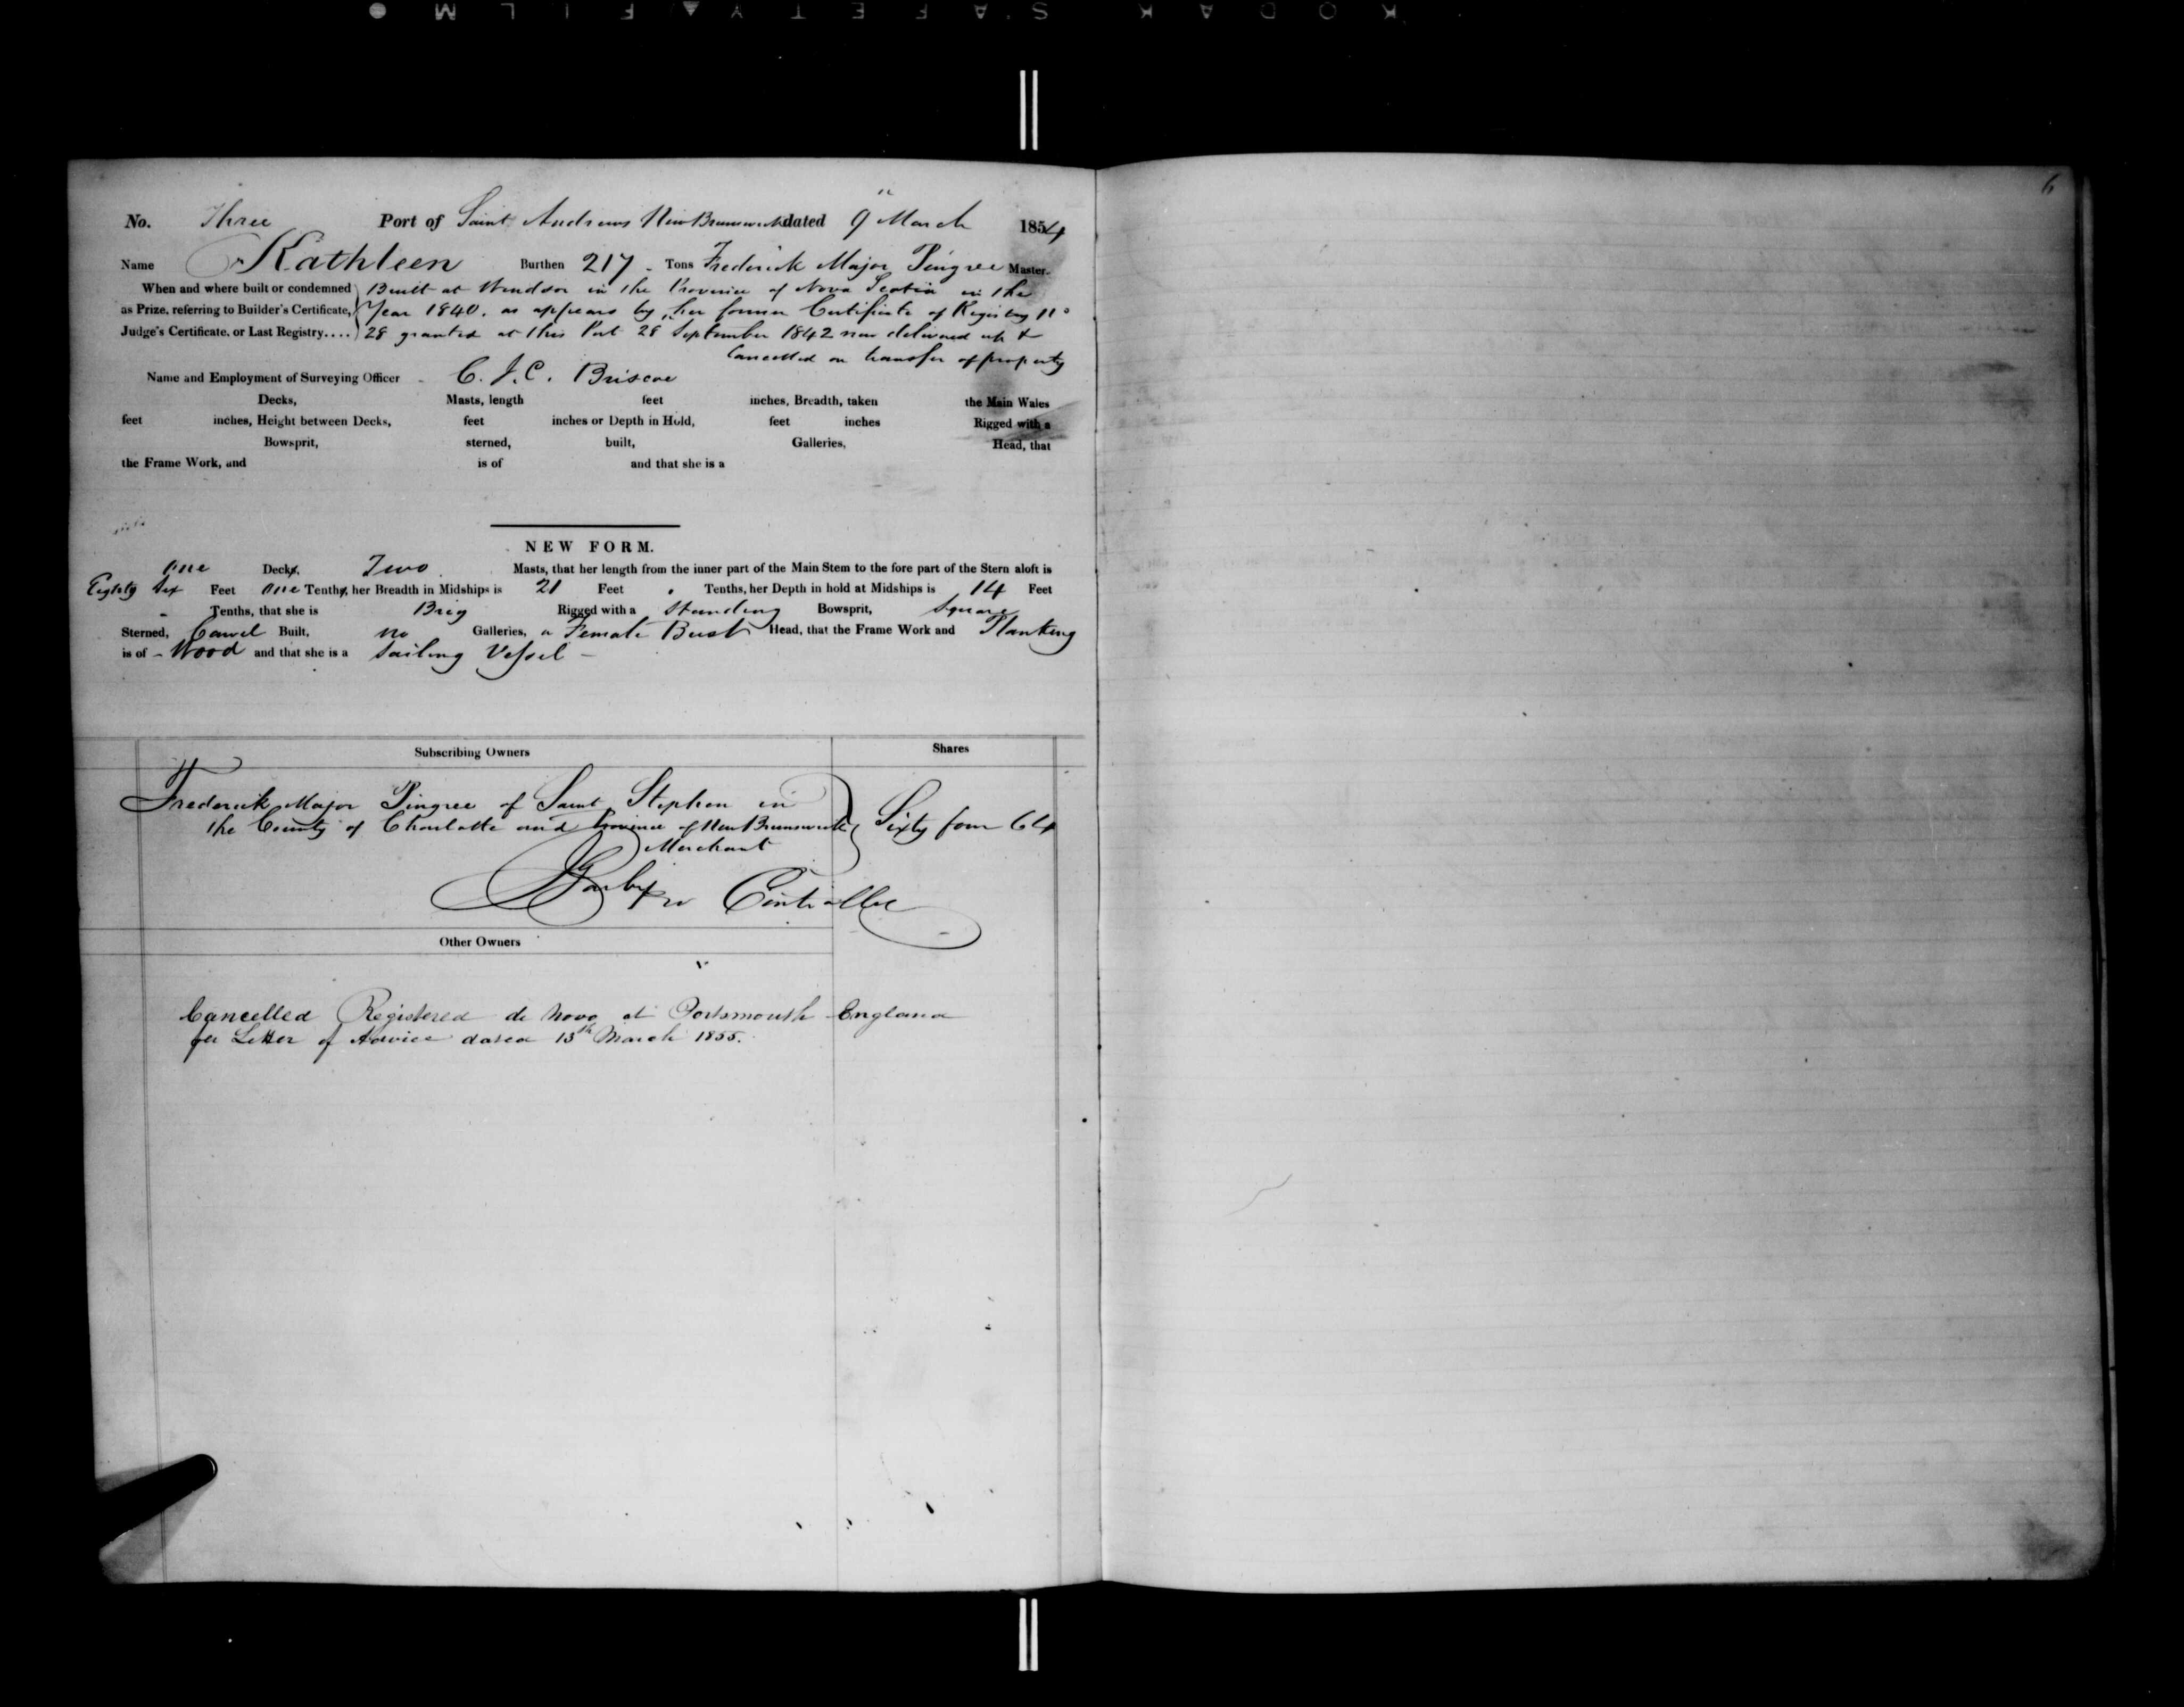 KODAK SAFETY FILM
6
No. Three Port of Saint Andrews New Brunswick dated 9" March 1854
Name Kathleen Burthen 217 - Tons Frederick Major Pingree Master.
When and where built or condemned Built at Windsor in the Province of Nova Scotia in the
as Prize, referring to Builder's Certificate, Year 1840. as appears by her former Certificate of Registry No
Judge's Certificate. or Last Registry.... 28 granted at this Port 28 September 1842 now delivered up &
Cancelled on transfer of property
Name and Employment of Surveying Officer - C. J. C. Briscoe
Decks, Masts, length feet inches, Breadth, taken the Main Wales
feet inches, Height between Decks, feet inches or Depth in Hold, feet inches Rigged with a
Bowsprit, sterned, built, Galleries, Head, that
the Frame Work, and is of and that she is a
NEW FORM.
One Decks, Two Masts, that her length from the inner part of the Main Stem to the fore part of the Stern aloft is
Eighty Six Feet One Tenths, her Breadth in Midships is 21 Feet . Tenths, her Depth in hold at Midships is 14 Feet
- Tenths, that she is Brig Rigged with a Standing Bowsprit, Square
Sterned, Carvel Built, no Galleries, a Female Bust Head, that the Frame Work and Planking
is of - Wood and that she is a Sailing Vessel -
Subscribing Owners Shares
Frederick Major Pingree of Saint Stephen in
the County of Charlotte and Province of New Brunswick Sixty four 64
Merchant
Controller
Other Owners
Cancelled Registered de Novo at Portsmouth England
per Letter of Advice dated 13th March 1855.